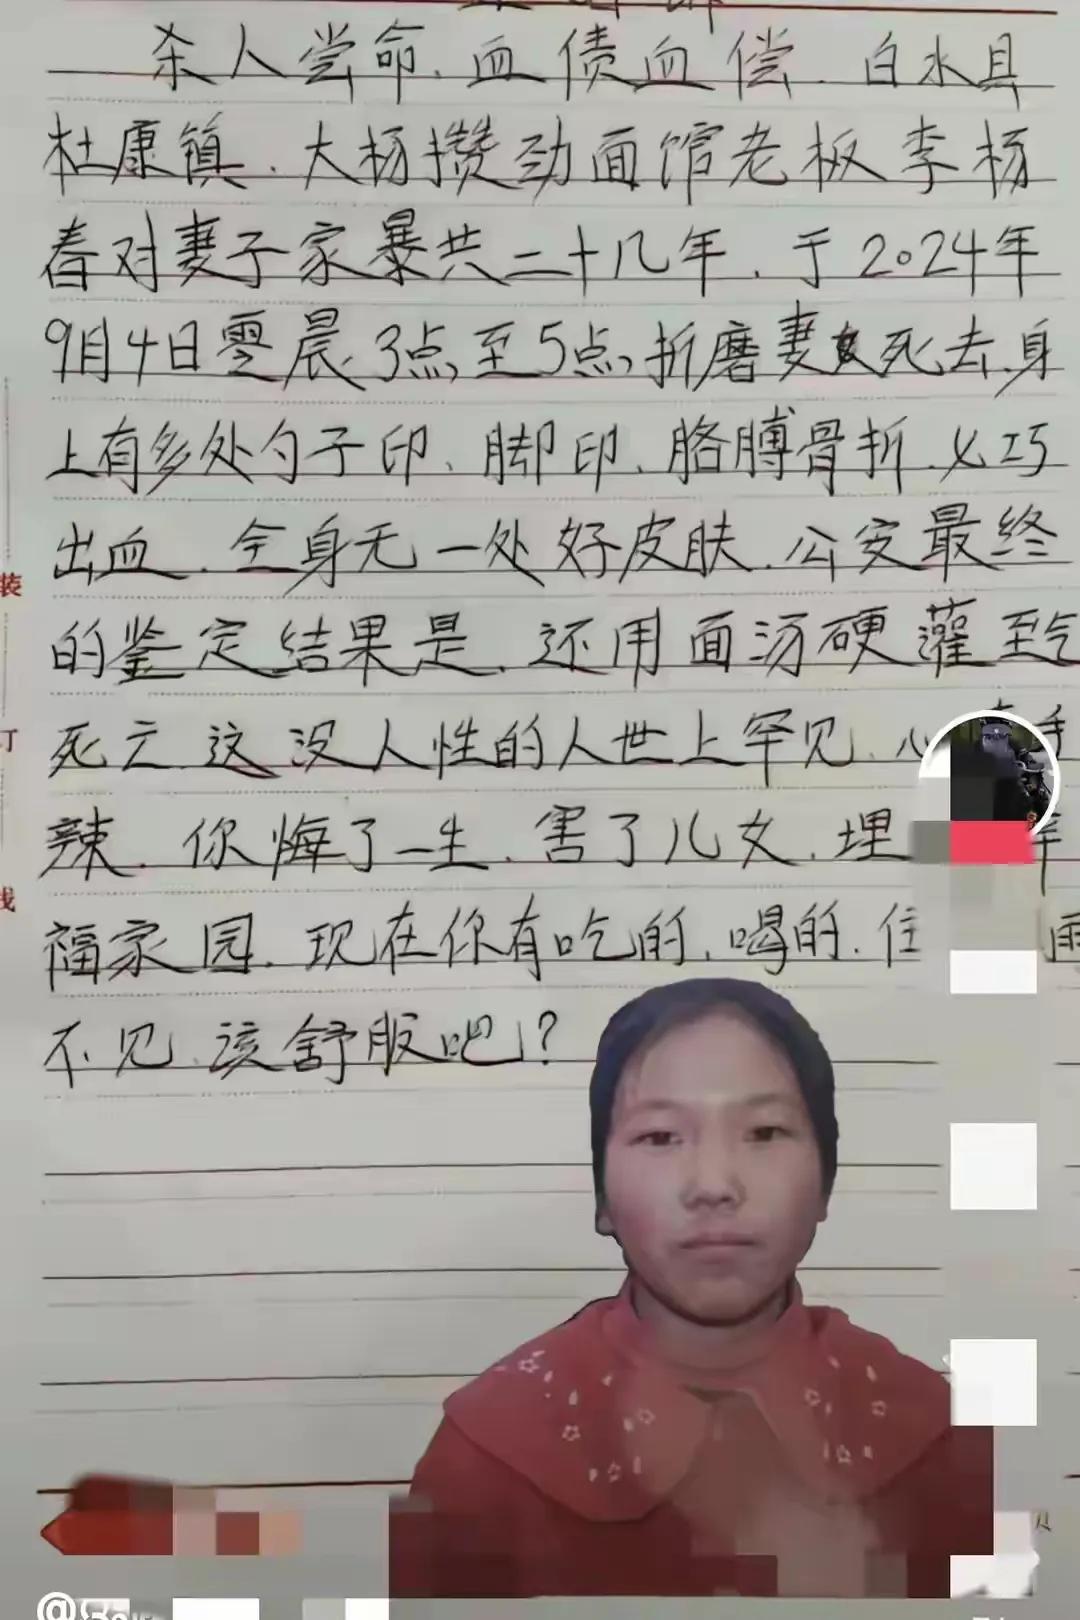 杀人尝命.血债血偿.白水县
杜康镇.大杨攒劲面馆老板李杨
春对妻子家暴共二十几年.于2024年
9月4日零晨3点至5点,折磨妻死去.身
上有多处勺子印、脚印、胳膊骨折.七巧
出血.全身无一处好皮肤.公安最终
的鉴定结果是.还用面汤硬灌至
死亡.这没人性的人世上罕见.心
辣.你悔了一生.害了儿女.埋
福家园.现在你有吃的.喝的.住 雨
不见.该舒服吧?
装
订
线